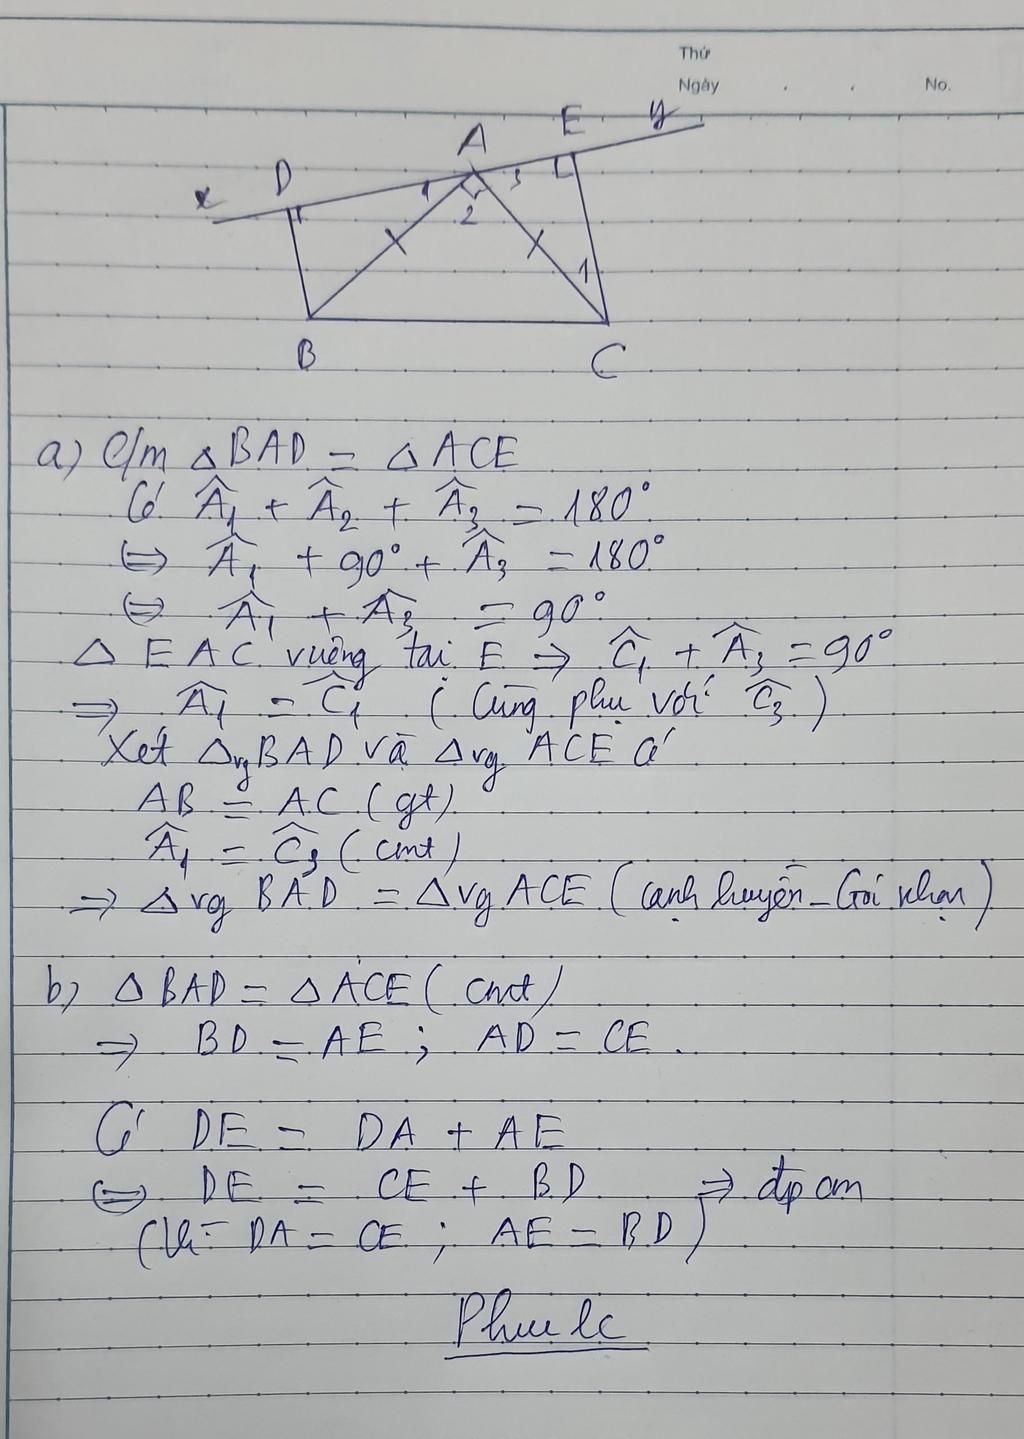 Thứ
Ngày . . No.
x D A E y
1 2 3
1
B C
a) C/m △BAD = △ACE
Có Â₁ + Â₂ + Â₃ = 180°
⇔ Â₁ + 90° + Â₃ = 180°
⇔ Â₁ + Â₃ = 90°
△ EAC vuông tại E ⇒ Ĉ₁ + Â₃ = 90°
⇒ Â₁ = Ĉ₁ ( Cùng phụ với Ĉ₃ )
Xét △vg BAD và △vg ACE có
AB = AC (gt)
Â₁ = Ĉ₃ (cmt)
⇒ △vg BAD = △vg ACE (cạnh huyền - Góc nhọn)
b) △BAD = △ACE (cmt)
⇒ BD = AE ; AD = CE .
Có DE = DA + AE
⇔ DE = CE + BD ⇒ đpcm
(Vì DA = CE ; AE = BD)